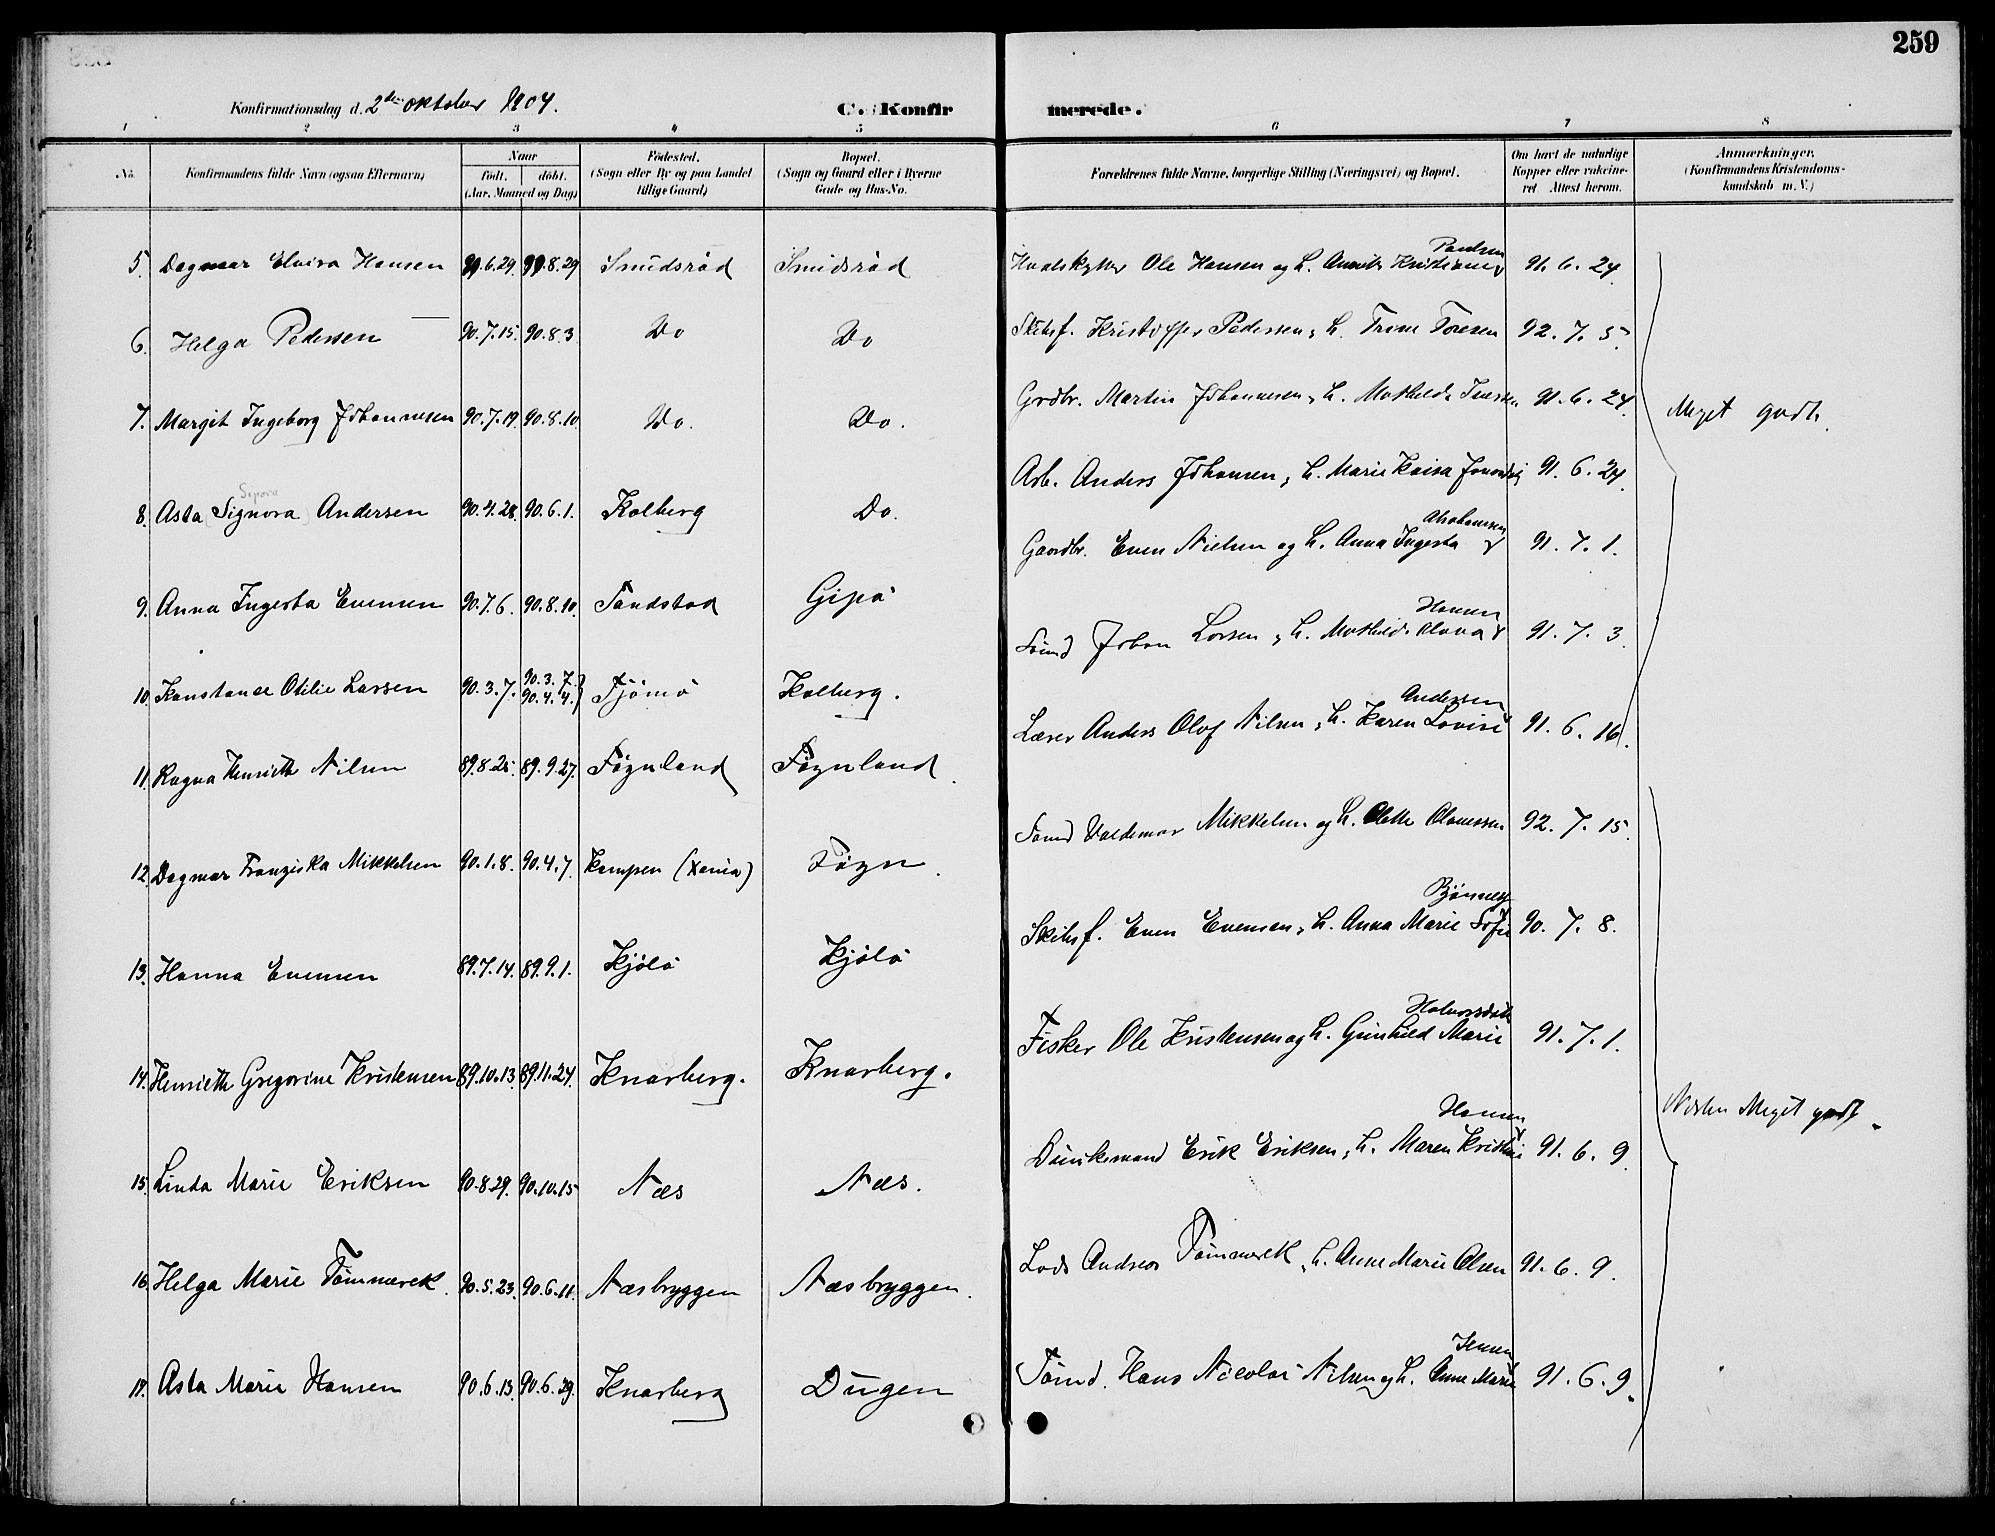 259
Konfirmationsdag d. 2den oktober 1904.
C. Konfirmerede.
1 2 3 4 5 6 7 8
No.
Konfirmandens fulde Navn (ogsaa Efternavn)
Naar
født. døbt.
(Aar, Maaned og Dag)
Fødested.
(Sogn eller By og paa Landet
tillige Gaard)
Bopæl.
(Sogn og Gaard eller i Byerne
Gade og Hus-No.
Forældrenes fulde Navne, borgerlige Stilling (Næringsvei) og Bopæl.
Om havt de naturlige
Kopper eller vakcine-
ret Attest herom.
Anmærkninger.
(Konfirmandens Kristendoms-
kundskab m. V.)
5. Dagmar Elvira Hansen 90.6.29 90.8.29 Smidsrød Smidsrød Hvalskytter Ole Hansen og h. Kristiane Paulsen 91. 6. 24.
6. Helga Pedersen 90.7.15. 90.8.3. Do Do Skibsf. Kristoffer Pedersen, h. Trine Toresen 92. 7. 5.
7. Margit Ingeborg Johannesen 90.7.19. 90.8.10. Do. Do. Grdbr. Martin Johannesen, h. Mathilde 91. 6. 24. Meget godt.
8. Asta (Signora) Sepora Andersen 90.4.28. 90.6.1. Kolberg Do. Arb. Anders Johansen, h. Marie Kaisa 91. 6. 24.
9. Anna Ingerta Evensen 90.7.6. 90.8.10. Sandstad Gipø Gaardbr. Even Nielsen og h. Anna Ingerta Abrahamsen 91. 7. 1.
10. Konstance Otilie Larsen 90.3.7. 90.3.7. 90.4.4. Tjømø Kolberg. Sømd Johan Larsen, h. Mathilde Olava Hansen 91. 7. 3.
11. Ragna Henriette Nilsen 89.8.25. 89.9.27. Føynland Føynland. Lærer Anders Olaf Nilsen, h. Karen Lovise Andersen 91. 6. 16.
12. Dagmar Franziska Mikkelsen 90.1.8. 90.4.7. Kampen (Xania) Føyn. Sømd Valdemar Mikkelsen og h. Olette Olaussen 92. 7. 15.
13. Hanna Evensen 89.7.14. 89.9.1. Kjølø Kjølø Skibsf. Even Evensen, h. Anna Marie Sofie Bjønnes 90. 7. 8.
14. Henriette Gregorine Kristensen 89.10.13. 89.11.24. Knarberg. Knarberg. Fisker Ole Kristensen og h. Gunhild Marie Halvorsdatt 91. 7. 1. Næsten Meget godt.
15. Linda Marie Eriksen 90.8.29. 90.10.15 Næs Næs. Erik Eriksen, h. Maren Kristine Hansen 91. 6. 9.
16. Helga Marie Tømmerek. 90.5.23. 90.6.11. Næsbryggen Næsbryggen. Lods Andreas Tømmerek, h. Anne Marie Olsen 91. 6. 9.
17. Asta Marie Hansen 90.6.13. 90.6.29. Knarberg Dugen Tømd. Hans Nicolai Nilsen og h. Anne Marie Jensen 91. 6. 9.